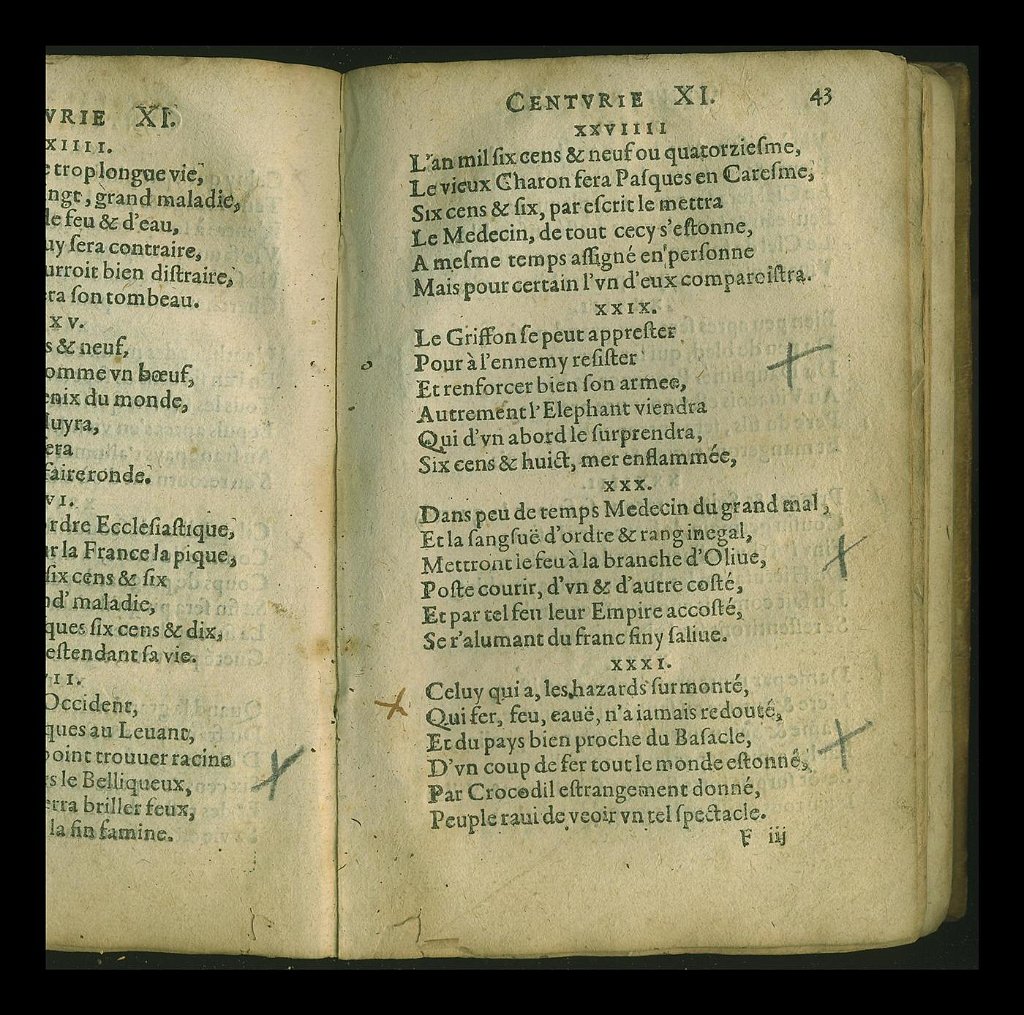 VRIE XI.
XIIII.
e trop longue vie,
ngt, grand maladie,
de feu & d'eau,
uy ſera contraire,
urroit bien diſtraire,
ra ſon tombeau.
XV.
s & neuf,
omme vn bœuf,
enix du monde,
luyra,
era
faire ronde.
VI.
rdre Eccleſiaſtique,
ur la France la pique,
ſix cens & ſix
nd' maladie,
ques ſix cens & dix,
eſtendant ſa vie.
II.
Occident,
ques au Leuant,
point trouuer racine
s le Belliqueux,
erra briller feux,
la fin famine.
CENTVRIE XI. 43
XXVIIII
L'an mil ſix cens & neuf ou quatorzieſme,
Le vieux Charon fera Paſques en Careſme,
Six cens & ſix, par eſcrit le mettra
Le Medecin, de tout cecy s'eſtonne,
A meſme temps aſſigné en perſonne
Mais pour certain l'vn d'eux comparoiſtra.
XXIX.
Le Griffon ſe peut appreſter
Pour à l'ennemy reſiſter
Et renforcer bien ſon armee,
Autrement l'Elephant viendra
Qui d'vn abord le ſurprendra,
Six cens & huict, mer enflammée,
XXX.
Dans peu de temps Medecin du grand mal,
Et la ſangſuë d'ordre & rang inegal,
Mettront le feu à la branche d'Oliue,
Poſte courir, d'vn & d'autre coſté,
Et par tel feu leur Empire accoſté,
Se r'alumant du franc finy ſaliue.
XXXI.
Celuy qui a, les hazards ſurmonté,
Qui fer, feu, eauë, n'a iamais redouté,
Et du pays bien proche du Baſacle,
D'vn coup de fer tout le monde eſtonné,
Par Crocodil eſtrangement donné,
Peuple raui de veoir vn tel ſpectacle.
F iij